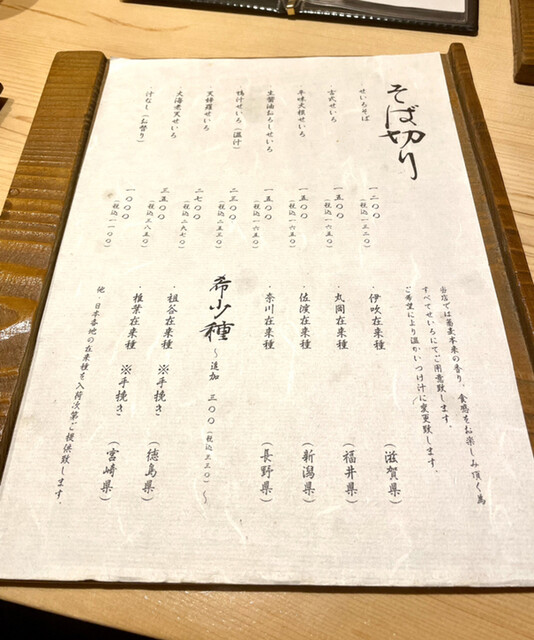 そば切り
せいろそば 一二〇〇(税込一三二〇)
古式せいろ 一五〇〇(税込一六五〇)
辛味大根せいろ 一五〇〇(税込一六五〇)
生醤油おろしせいろ 一五〇〇(税込一六五〇)
鴨汁せいろ(温汁) 二三〇〇(税込二五三〇)
天婦羅せいろ 二七〇〇(税込二九七〇)
大海老天せいろ 三五〇〇(税込三八五〇)
汁なし(お替り) 一〇〇〇(税込一一〇〇)
当店では蕎麦本来の香り、食感をお楽しみ頂く為
すべてせいろにてご用意致します。
ご希望により温かいつけ汁に変更致します。
・伊吹在来種 (滋賀県)
・丸岡在来種 (福井県)
・佐渡在来種 (新潟県)
・奈川在来種 (長野県)
希少種 ～追加 三〇〇(税込三三〇)～
・祖谷在来種 ※手挽き (徳島県)
・椎葉在来種 ※手挽き (宮崎県)
他、日本各地の在来種を入荷次第ご提供致します。